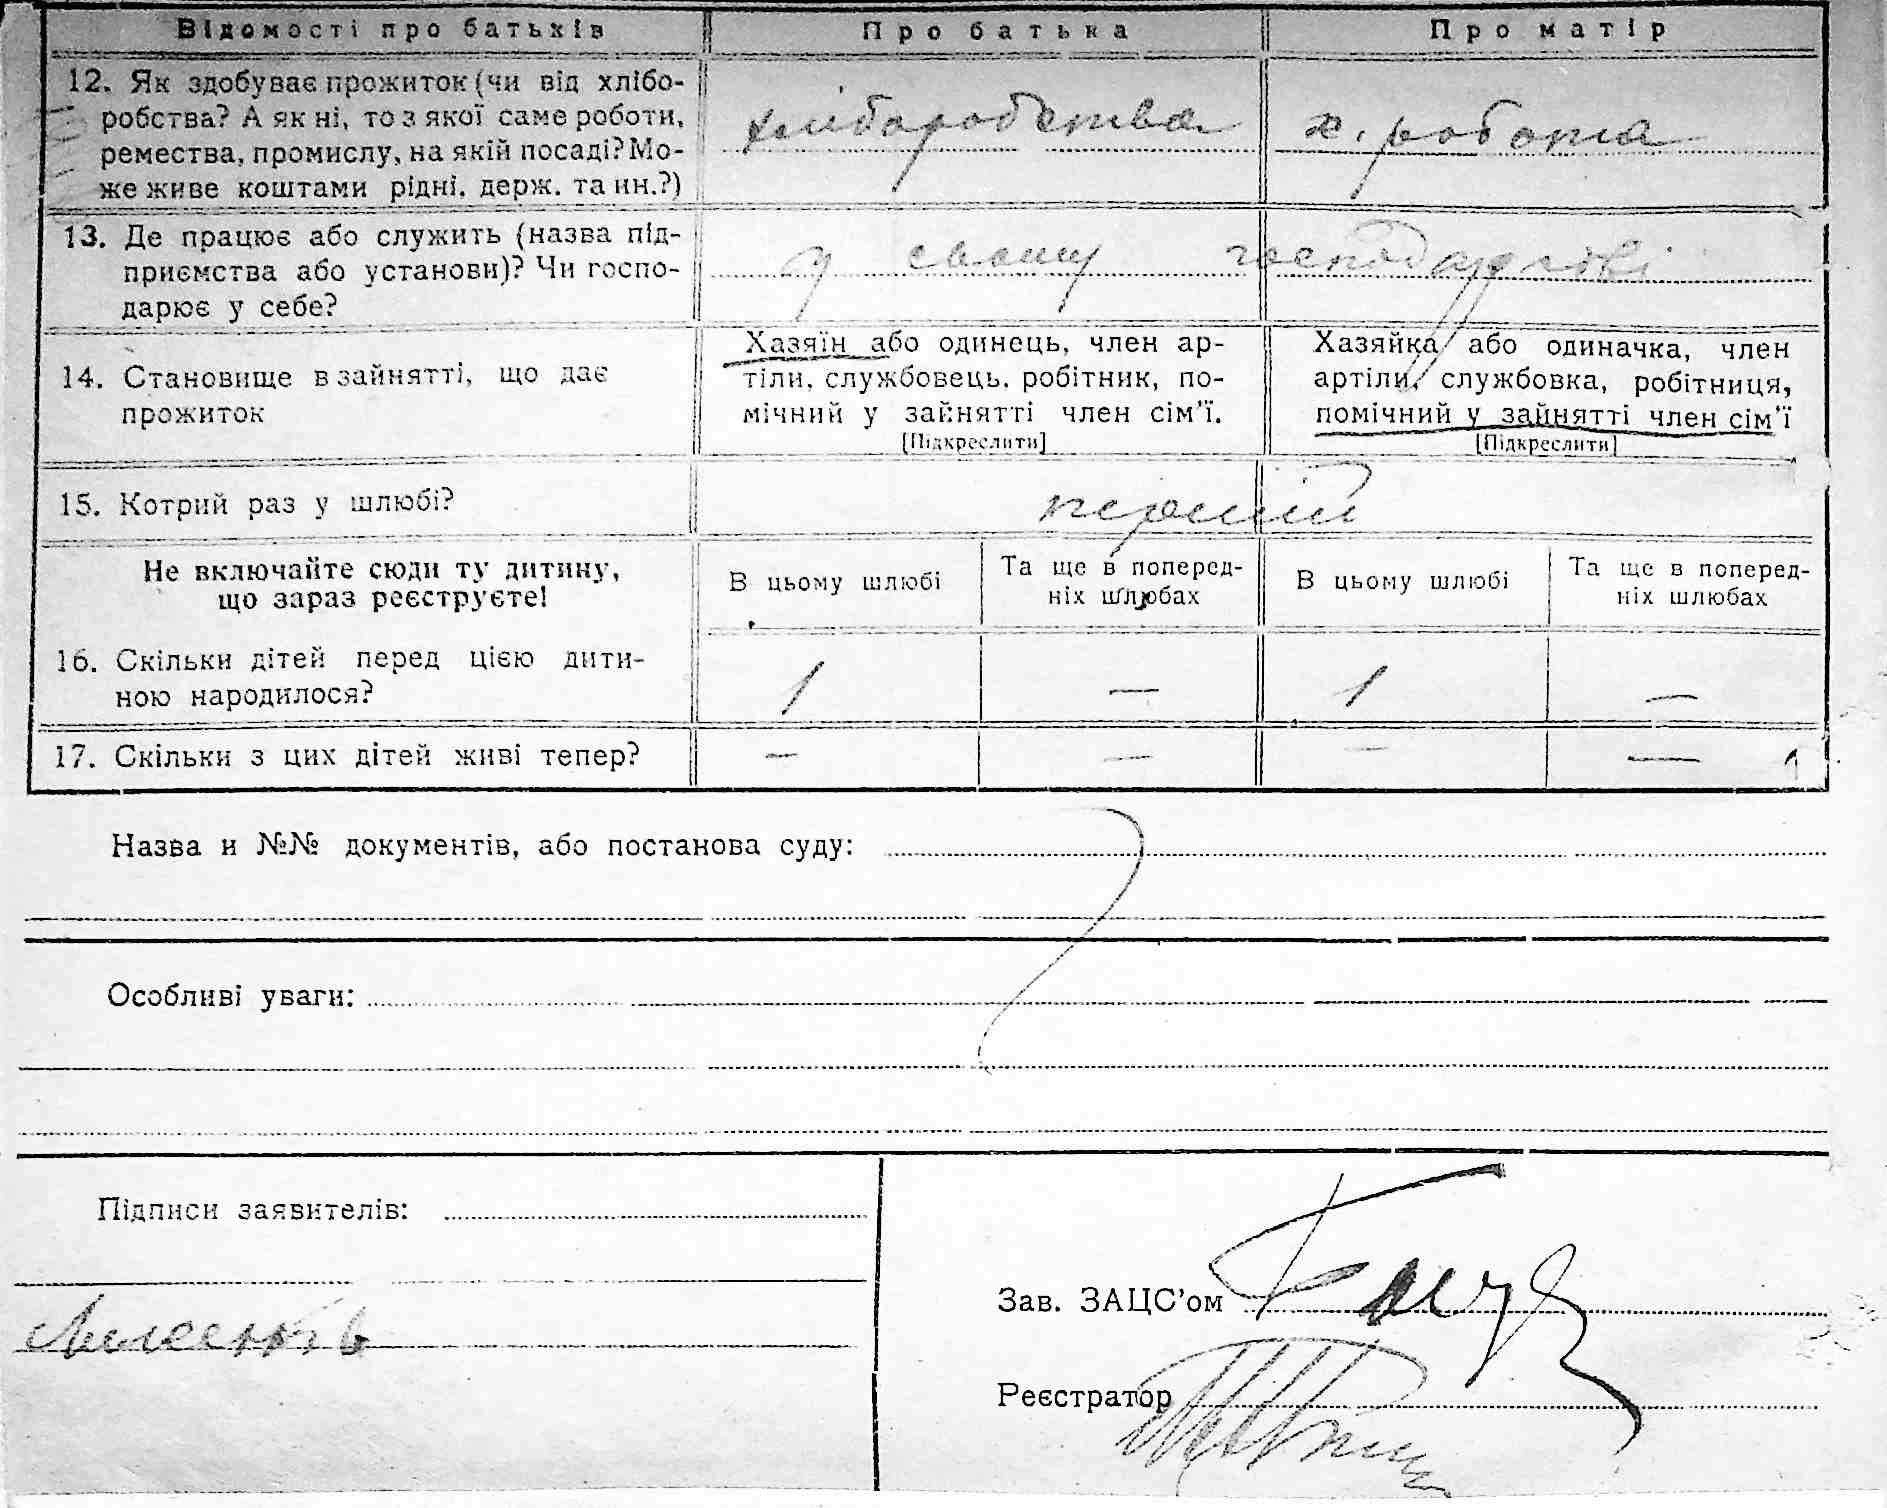 Відомості про батьків Про батька Про матір
12. Як здобуває прожиток (чи від хлібо-
робства? А як ні, то з якої саме роботи,
ремества, промислу, на якій посаді? Мо-
же живе коштами рідні, держ. та ин.?)
хліборобства х. робота
13. Де працює або служить (назва під-
приємства або установи)? Чи госпо-
дарює у себе?
у своему господарстві
14. Становище в зайнятті, що дає
прожиток
Хазяїн або одинець, член ар-
тіли, службовець, робітник, по-
мічний у зайнятті член сім'ї.
[Підкреслити]
Хазяйка або одиначка, член
артіли, службовка, робітниця,
помічний у зайнятті член сім'ї
[Підкреслити]
15. Котрий раз у шлюбі?
перший
Не включайте сюди ту дитину,
що зараз реєструєте!
В цьому шлюбі
Та ще в поперед-
ніх шлюбах
В цьому шлюбі
Та ще в поперед-
ніх шлюбах
16. Скільки дітей перед цією дити-
ною народилося?
1 — 1 —
17. Скільки з цих дітей живі тепер?
— — — —
Назва и №№ документів, або постанова суду:
Особливі уваги:
Підписи заявителів:
Зав. ЗАЦС'ом
Реєстратор